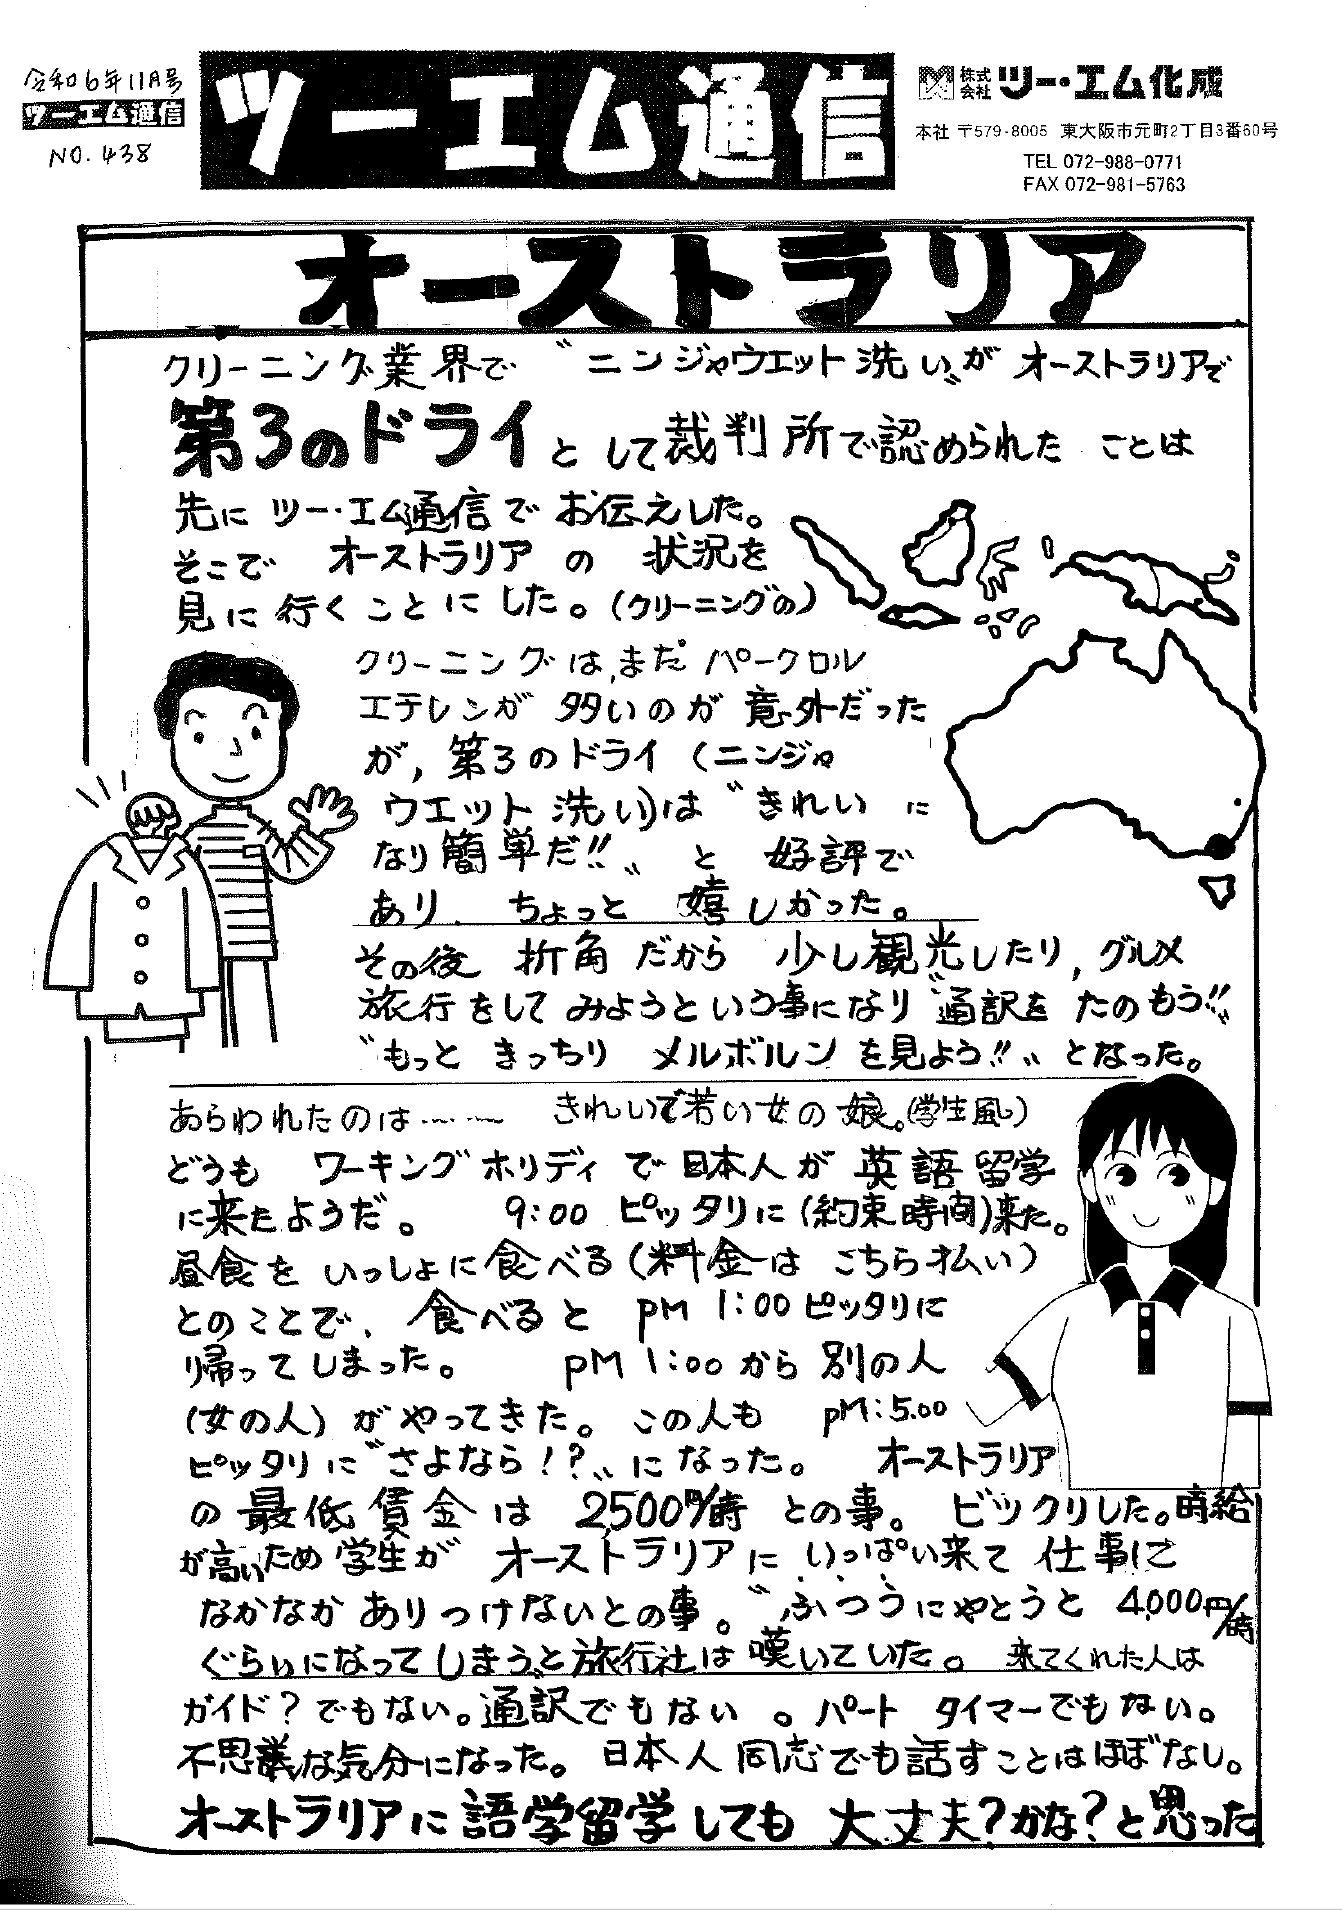 令和6年11月号
ツーエム通信
NO.438
ツーエム通信
株式会社 ツー・エム化成
本社 〒579-8005 東大阪市元町2丁目3番60号
TEL 072-988-0771
FAX 072-981-5763
オーストラリア
クリーニング業界で〝ニンジャウエット洗い〟がオーストラリアで
第3のドライとして裁判所で認められたことは
先にツー・エム通信でお伝えした。
そこでオーストラリアの状況を
見に行くことにした。(クリーニングの)
クリーニングは、まだパークロル
エチレンが多いのが意外だった
が、第3のドライ(ニンジャ
ウエット洗い)は〝きれいに
なり簡単だ!!〟と好評で
あり、ちょっと嬉しかった。
その後折角だから少し観光したり、グルメ
旅行をしてみようという事になり〝通訳をたのもう!!〟
〝もっときっちりメルボルンを見よう!!〟となった。
あらわれたのは…… きれいで若い女の娘。(学生風)
どうもワーキングホリディで日本人が英語留学
に来たようだ。 9:00ピッタリに(約束時間)来た。
昼食をいっしょに食べる(料金はこちら払い)
とのことで、食べるとPM 1:00ピッタリに
帰ってしまった。 PM 1:00から別の人
(女の人)がやってきた。この人も PM:5.00
ピッタリに〝さよなら!?〟になった。 オーストラリア
の最低賃金は2,500円/時との事。ビックリした。時給
が高いため学生がオーストラリアにいっぱい来て仕事に
なかなかありつけないとの事。〝ふつうにやとうと4,000円/時
ぐらいになってしまう〟と旅行社は嘆いていた。来てくれた人は
ガイド?でもない。通訳でもない。パートタイマーでもない。
不思議な気分になった。日本人同志でも話すことはほぼなし。
オーストラリアに語学留学しても大丈夫?かな?と思った